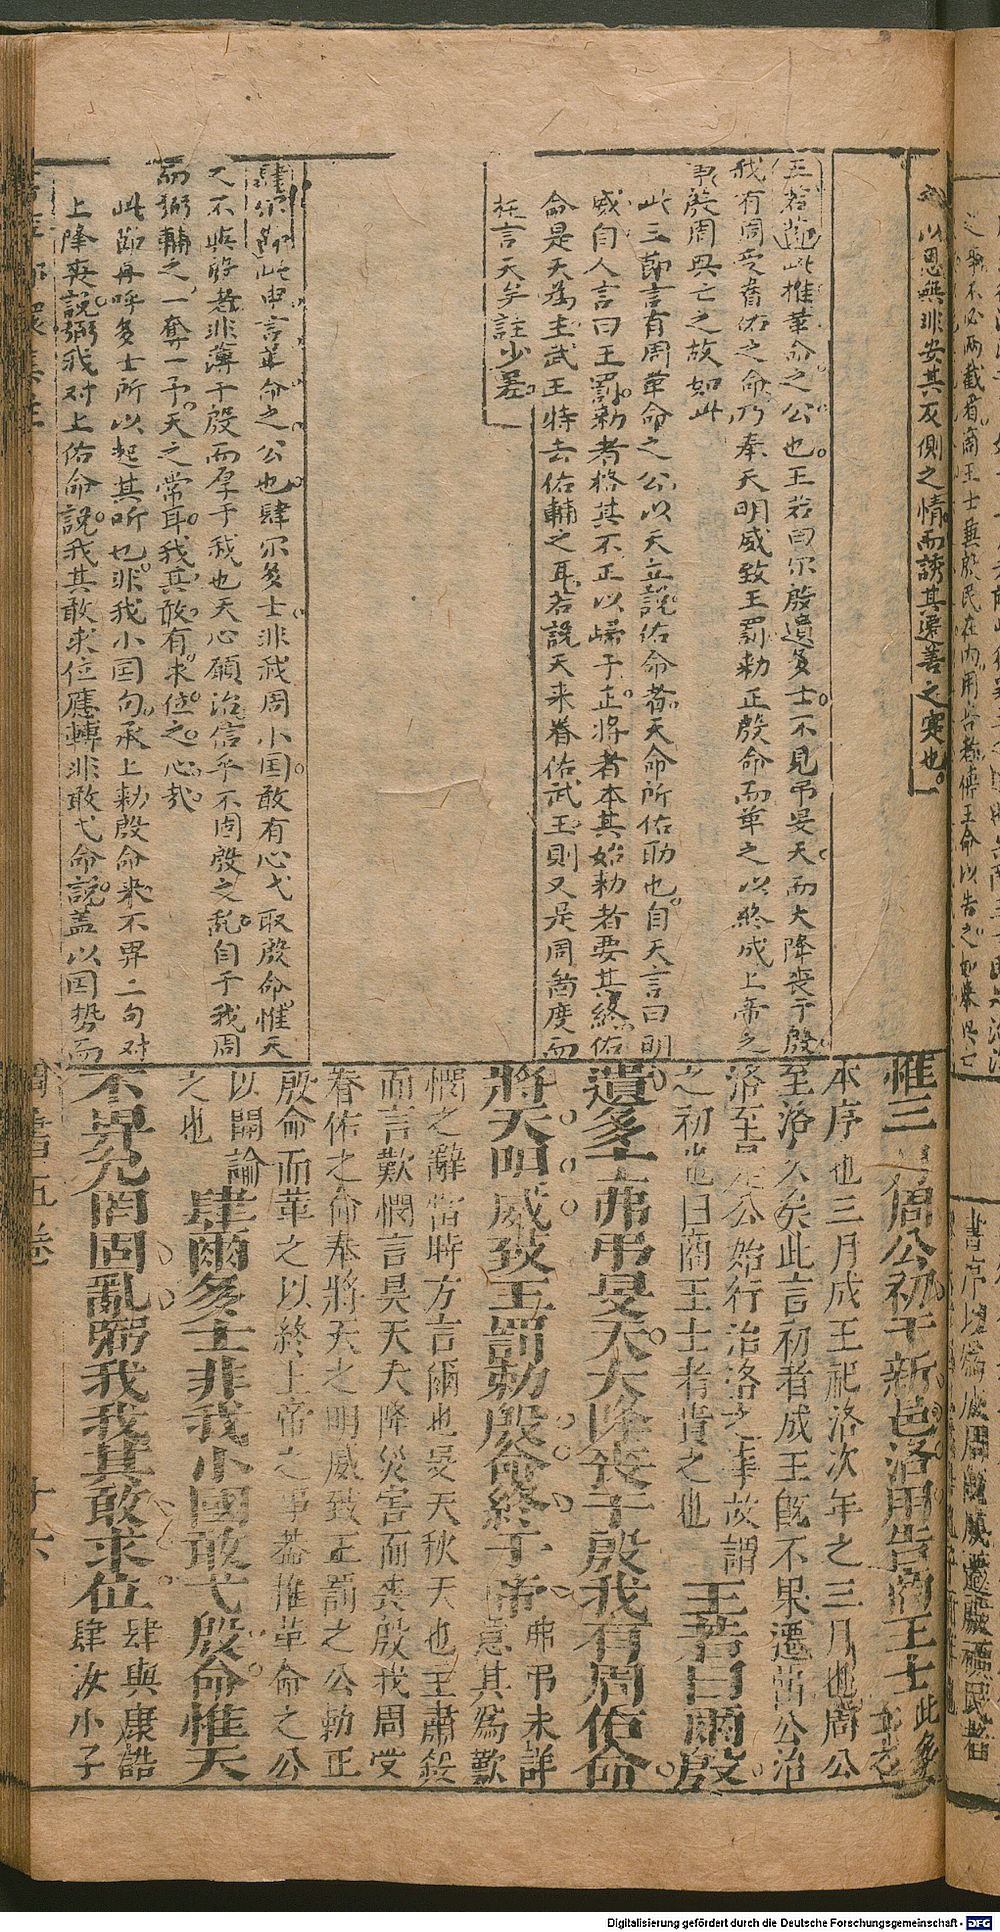 以恩無非安其反側之情而誘其遷善之寔也
王若節此推革命之公也王若曰尔殷遺多士不見弔旻天而大降丧于殷
我有周受眷佑之命乃奉天明威致王罰勅正殷命而革之以終成上帝之
事殷周興亡之故如此
此三節言有周革命之公以天立說佑命者天命所佑助也自天言曰明
威自人言曰王罰勅者格其不正以歸于正將者本其始勅者要其終佑
命是天為主武王特去佑輔之耳若説天来眷佑武王則又是周箇度而
托言天矣註少差
肆尔節此申言革命之公也肆尔多士非我周小国敢有心弋取殷命惟天
之不畀殷者非薄于殷而厚于我也天心願治信乎不固殷之乱自于我周
而弼輔之一奪一予天之常耳我其敢有求位之心哉
此節再呼多士所以起其听也非我小国句承上勅殷命来不畀二句对
上降丧說弼我对上佑命說我其敢求位應轉非敢弋命說盖以国势而
惟三月周公初于新邑洛用告商王士此多士之
本序也三月成王祀洛次年之三月也周公
至洛久矣此言初者成王既不果遷留公治
洛至是公始行治洛之事故謂
之初也曰商王士者貴之也王若曰爾殷
遺多士弗弔旻天大降丧于殷我有周佑命
將天明威致王罰勅殷命終于帝弗弔未詳意其為歎
憫之辭當時方言爾也旻天秋天也主肅殺
而言歎憫言旻天大降災害而丧殷我周受
眷佑之命奉將天之明威致王罰之公勅正
殷命而革之以終上帝之事蓋推革命之公
以開諭
之也肆爾多士非我小國敢弋殷命惟天
不畀允罔固亂弼我我其敢求位肆與康誥
肆汝小子
周書五卷
十六
Digitalisierung gefördert durch die Deutsche Forschungsgemeinschaft - DFG